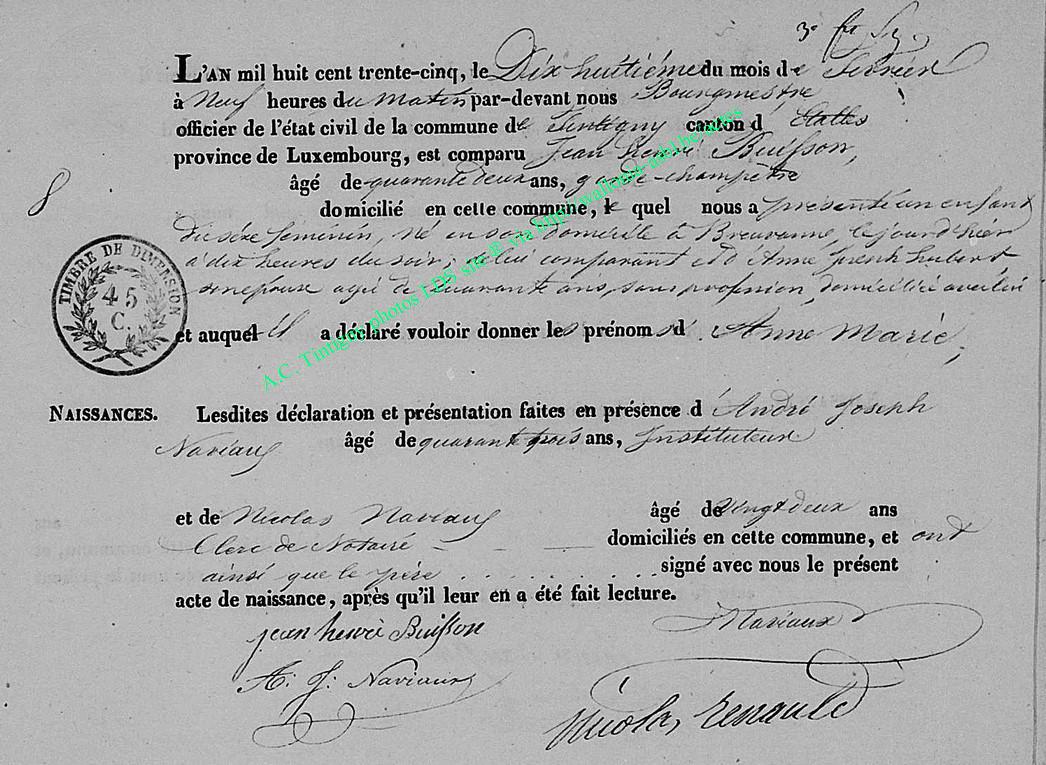 L'AN mil huit cent trente-cinq, le Dix huitiéme du mois de Fevrier
à Neuf heures du matin par-devant nous Bourgmestre
officier de l'état civil de la commune de Tintigny canton d'Etalle
province de Luxembourg, est comparu Jean henri Buisson,
âgé de quarante deux ans, garde-champêtre
8
domicilié en cette commune, le quel nous a présenté un enfant
du séxe feminin, né en son domicile à Breuvanne, le jour d'hier
à dix heures du soir, de lui comparant et d'Anne joseph hubert
son epouse agée de quarante ans, sans profession, domiciliée avec lui
TIMBRE DE DIMENSION
45
C.
et auquel il a déclaré vouloir donner les prénoms d'Anne Marie,
NAISSANCES. Lesdites déclaration et présentation faites en présence d'André Joseph
Naviaux âgé de quarante trois ans, Instituteur
et de Nicolas Naviaux âgé de vingt deux ans
Clerc de Notaire domiciliés en cette commune, et ont
ainsi que le père . . . . . . . . . signé avec nous le présent
acte de naissance, après qu'il leur en a été fait lecture.
jean henri Buisson Naviaux
A: J: Naviaux
Nicolas Renauld
A.C. Tintigny photos LDS site® via http://wallonia-asbl.be/actes